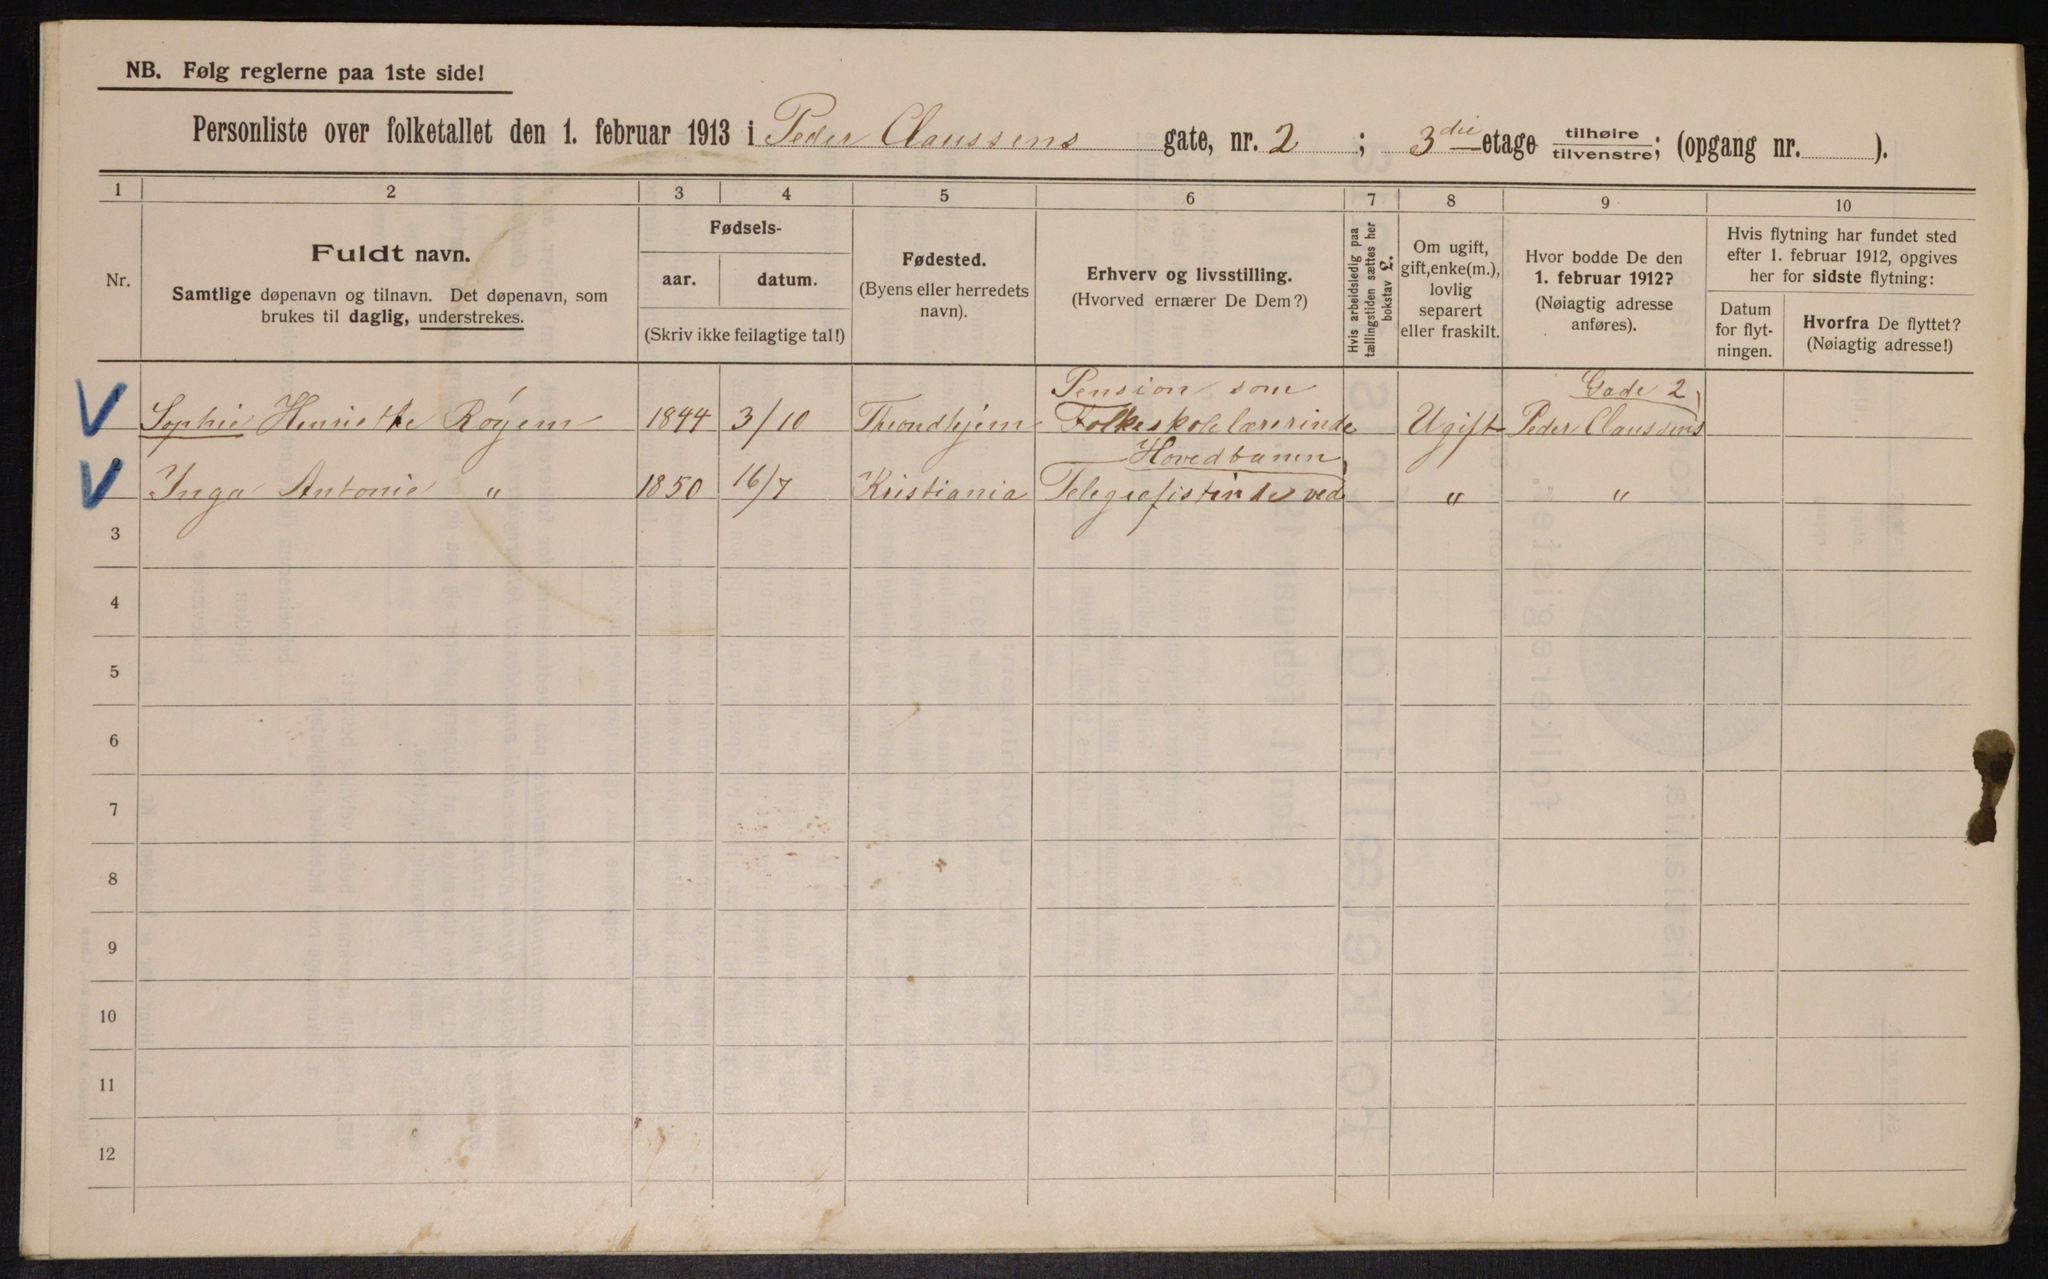 NB. Følg reglerne paa 1ste side!
Personliste over folketallet den 1. februar 1913 i Peder Claussens gate, nr. 2 ; 3die etage tilhøire tilvenstre; (opgang nr. ).
1 2 3 4 5 6 7 8 9 10
Nr.
Fuldt navn.
Samtlige døpenavn og tilnavn. Det døpenavn, som
brukes til daglig, understrekes.
Fødsels-
aar. datum.
(Skriv ikke feilagtige tal!)
Fødested.
(Byens eller herredets
navn).
Erhverv og livsstilling.
(Hvorved ernærer De Dem?)
Hvis arbeidsledig paa
tællingstiden sættes her
bokstav L.
Om ugift,
gift, enke(m.),
lovlig
separert
eller fraskilt.
Hvor bodde De den
1. februar 1912?
(Nøiagtig adresse
anføres).
Hvis flytning har fundet sted
efter 1. februar 1912, opgives
her for sidste flytning:
Datum
for flyt-
ningen.
Hvorfra De flyttet?
(Nøiagtig adresse!)
Pension som Gade 2
1 Sophie Henriette Röyem 1844 3/10 Throndhjem Folkeskolelærerinde Ugift Peder Claussens
Hovedbanen
2 Inga Antonie " 1850 16/7 Kristiania Telegrafistinde ved " "
3
4
5
6
7
8
9
10
11
12